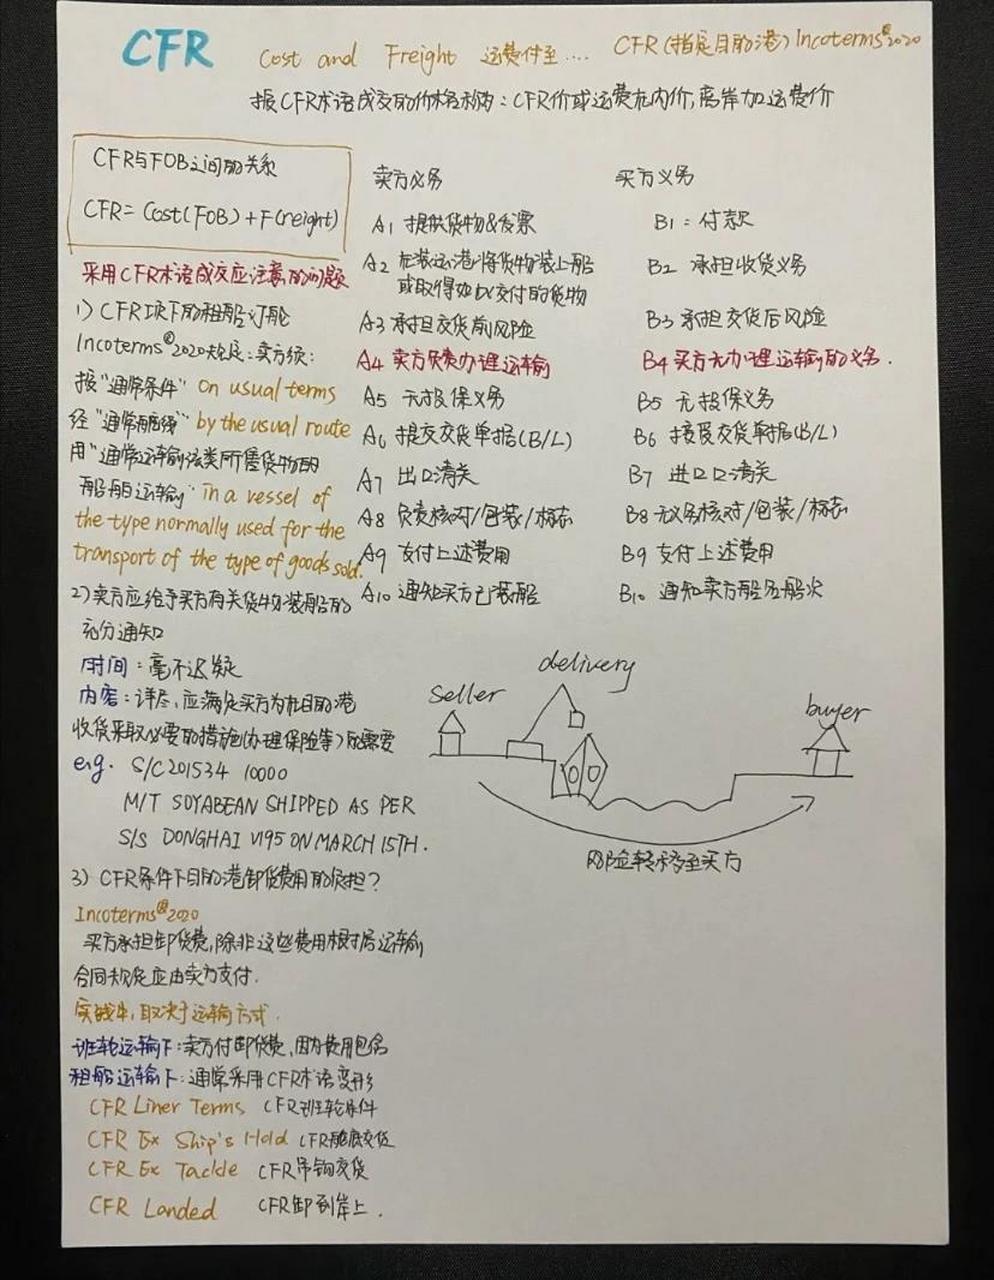 CFR Cost and Freight 运费付至.... CFR(指定目的港)Incoterms®2020
按CFR术语成交的价格称为:CFR价或运费在内价,离岸加运费价
CFR与FOB之间的关系
CFR=Cost(FOB)+F(reight)
采用CFR术语成交应注意的问题
1)CFR项下的租船订舱
Incoterms®2020规定:卖方须:
按"通常条件" on usual terms
经"通常航线" by the usual route
用"通常运输该类所售货物的
船舶运输" in a vessel of
the type normally used for the
transport of the type of goods sold.
2)卖方应给予买方有关货物装船的
充分通知
时间:毫不迟疑
内容:详尽,应满足买方为在目的港
收货采取必要的措施(办理保险等)的需要
e.g. S/C201534 10000
M/T SOYABEAN SHIPPED AS PER
S/S DONGHAI V195 ON MARCH 15TH.
3)CFR条件下目的港卸货费用的负担?
Incoterms®2020
买方承担卸货费,除非这些费用根据后运输
合同规定应由卖方支付.
实践中,取决于运输方式.
班轮运输下:卖方付卸货费,因为费用包含
租船运输下:通常采用CFR术语变形
CFR Liner Terms CFR班轮条件
CFR Ex Ship's Hold CFR舱底交货
CFR Ex Tackle CFR吊钩交货
CFR Landed CFR卸到岸上.
卖方义务
A1 提供货物&发票
A2 在装运港将货物装上船
或取得如此交付的货物
A3 承担交货前风险
A4 卖方负责办理运输
A5 无投保义务
A6 提交交货单据(B/L)
A7 出口清关
A8 负责核对/包装/标志
A9 支付上述费用
A10 通知买方已装船
买方义务
B1:付款
B2 承担收货义务
B3 承担交货后风险
B4 买方无办理运输的义务.
B5 无投保义务
B6 接受交货单据(B/L)
B7 进口清关
B8 无义务核对/包装/标志
B9 支付上述费用
B10 通知卖方船名船次
delivery
seller
buyer
风险转移至买方